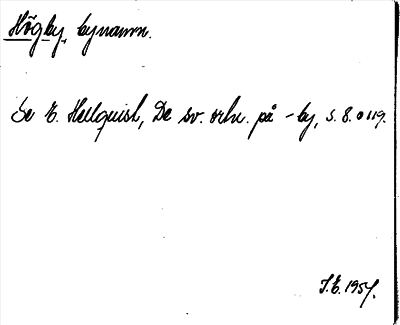 Högby, bynamn.
Se E. Hellquist, De sv. ortn. på -by, s. 8. o 119.
J.E. 1957.